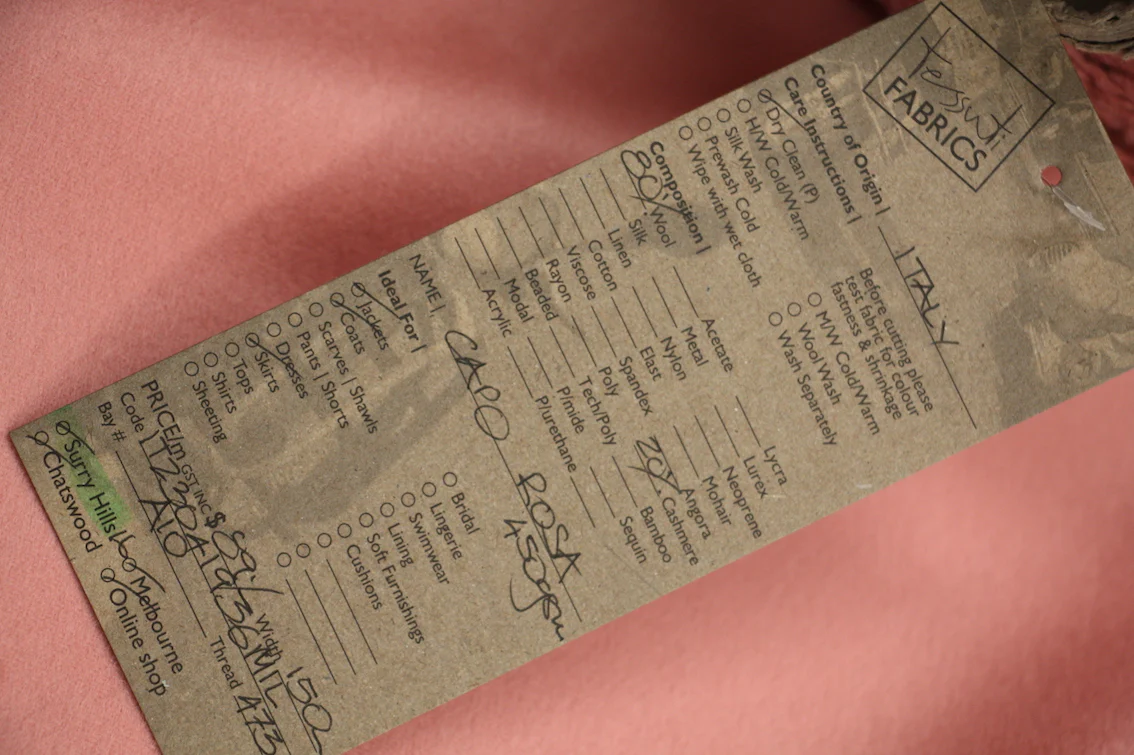 Tessuti
FABRICS
Country of Origin | ITALY
Care Instructions |
Dry Clean (P)
H/W Cold/Warm
Silk Wash
Prewash Cold
Wipe with wet cloth
Before cutting please
test fabric for colour
fastness & shrinkage
M/W Cold/Warm
Wool Wash
Wash Separately
Composition |
80% Wool
Silk
Linen
Cotton
Viscose
Rayon
Beaded
Modal
Acrylic
Acetate
Metal
Nylon
Elast
Spandex
Poly
Tech/Poly
P/mide
P/urethane
Lycra
Lurex
Neoprene
Mohair
Angora
20% Cashmere
Bamboo
Sequin
NAME | CAPO ROSA
450gsm
Ideal For |
Jackets
Coats
Scarves | Shawls
Pants | Shorts
Dresses
Skirts
Tops
Shirts
Sheeting
Bridal
Lingerie
Swimwear
Lining
Soft Furnishings
Cushions
PRICE/m GST INC $ 89 Width 150
Code
Bay # Thread 473
Surry Hills Melbourne
Chatswood Online shop